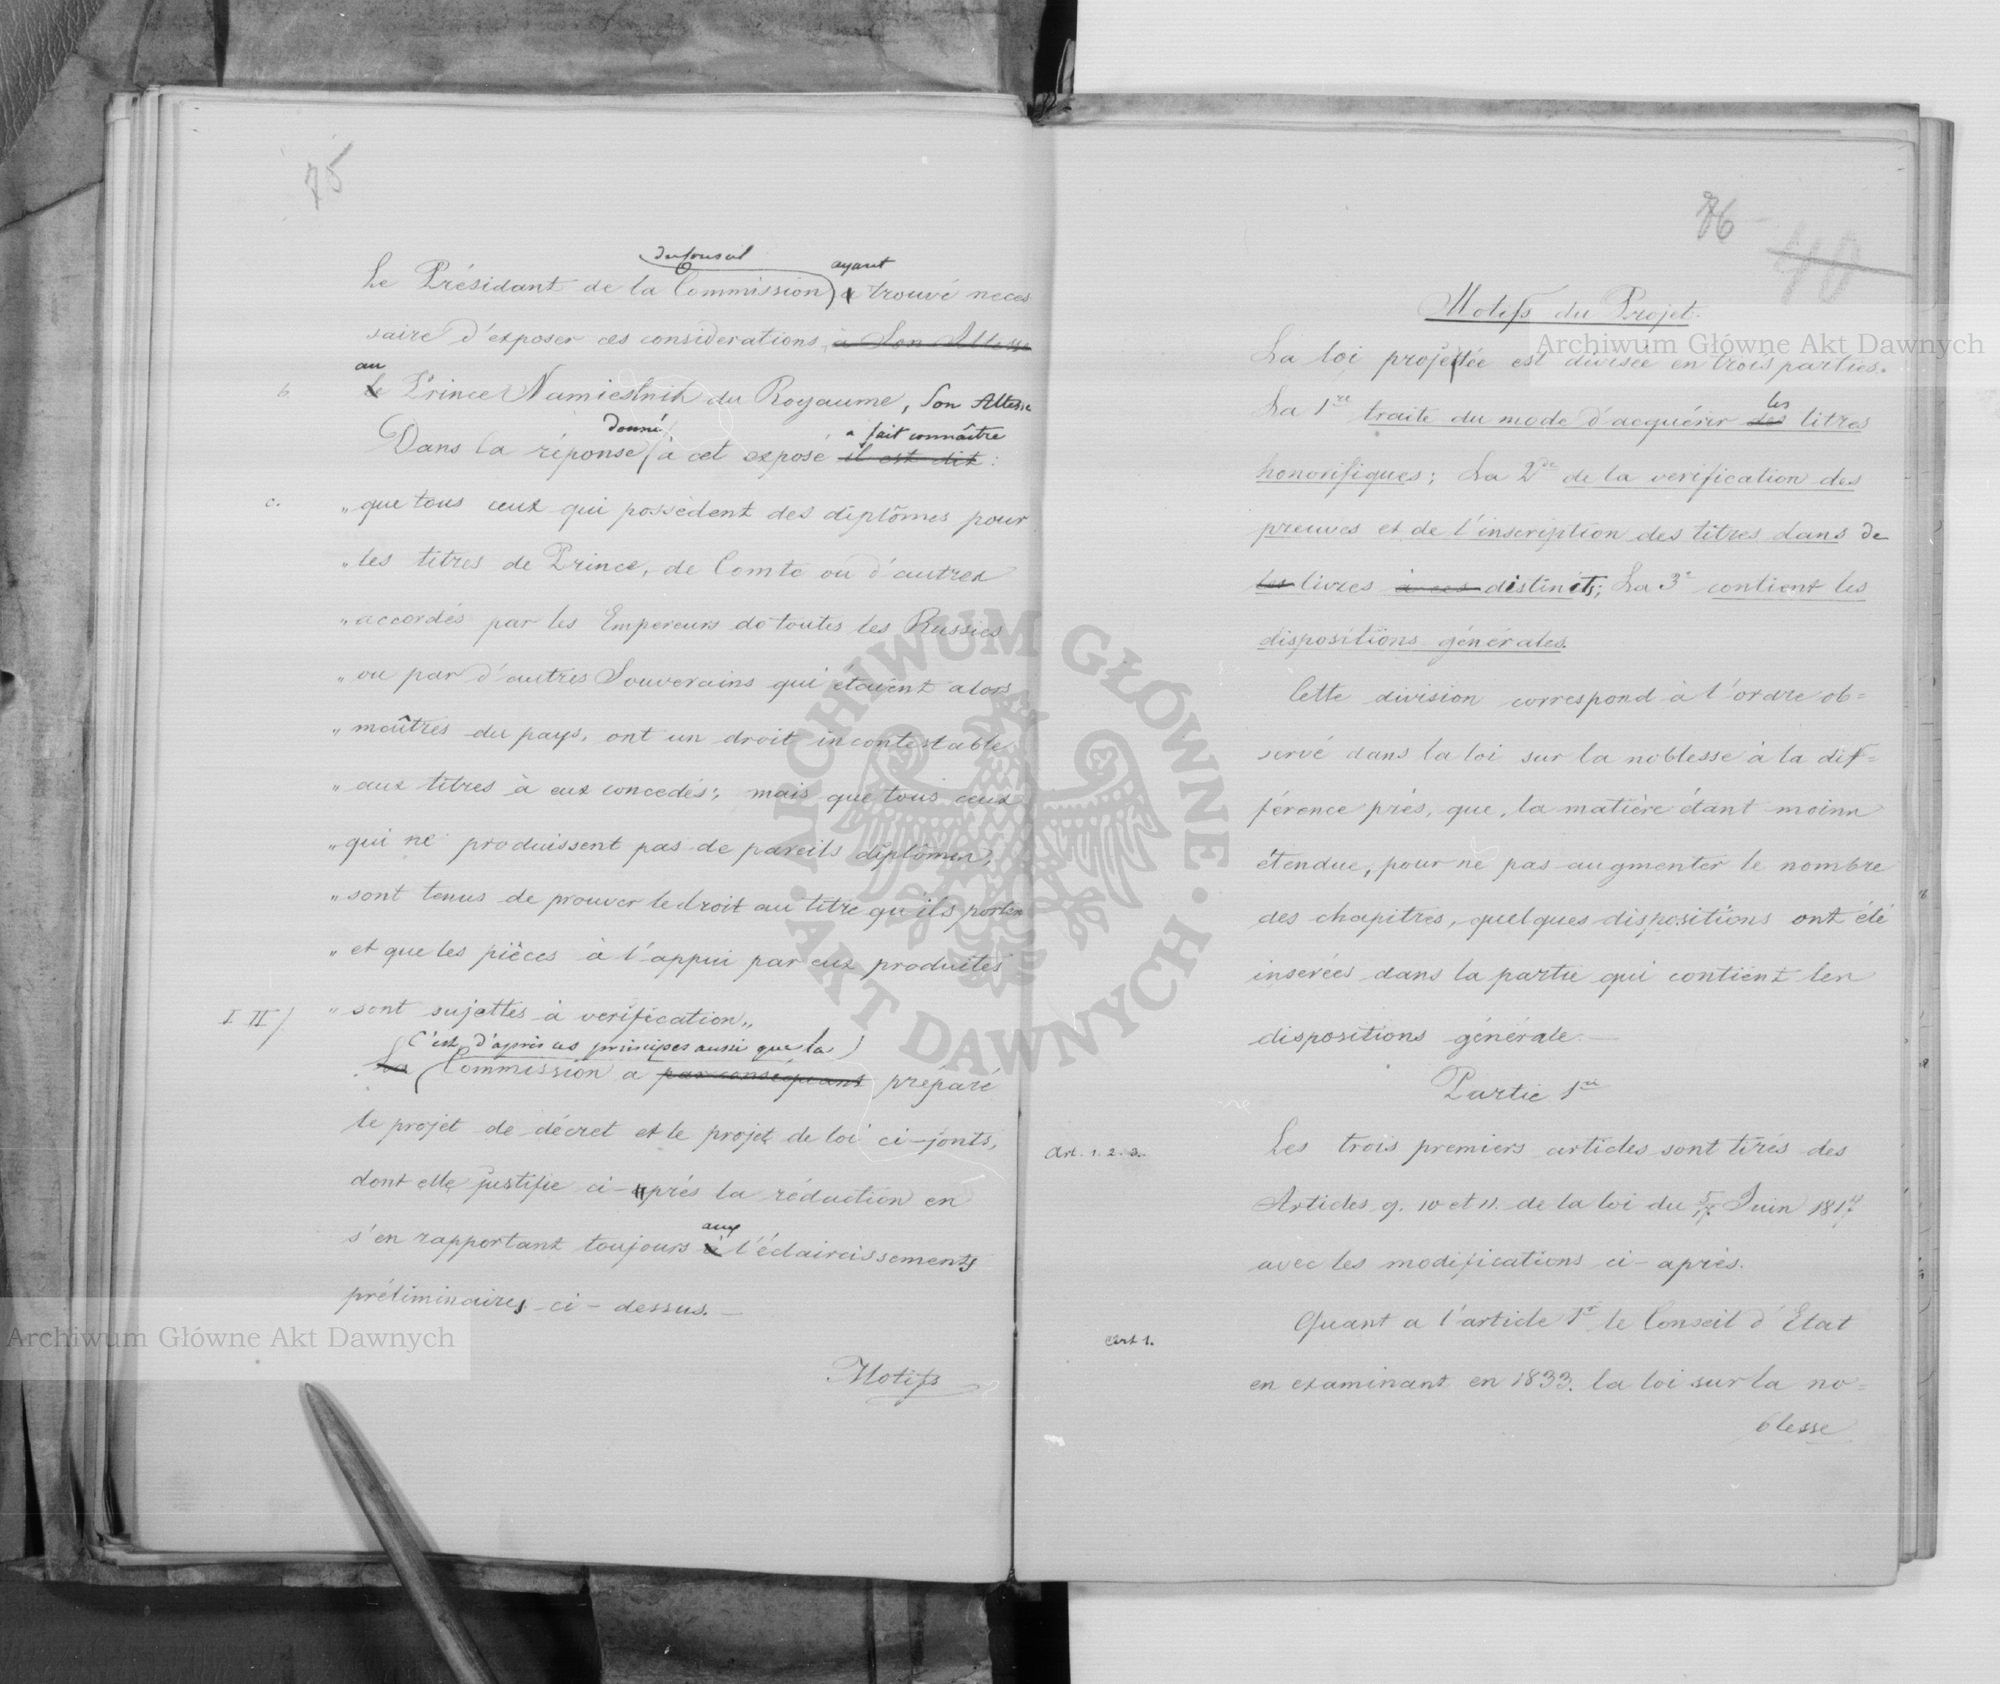 75
du Conseil ayant
Le Présidant de la Commission a trouvé neces
saire d'exposer ces considerations, à Son Altesse
au
b. le Prince Namiestnik du Royaume, Son Altesse
donné a fait connaître
Dans la réponse à cet exposé il est dit:
c. „que tous ceux qui possèdent des diplômes pour
„les titres de Prince, de Comte ou d'autres
„accordés par les Empereurs de toutes les Russies
„ou par d'autres Souverains qui étaient alors
„maîtres du pays, ont un droit incontestable
„aux titres à eux concedés; mais que tous ceux
„qui ne produissent pas de pareils diplômes,
„sont tenus de prouver le droit au titre qu'ils porten
„et que les pièces à l'appui par eux produites
I II/ „sont sujettes à verification„
C'est d'après ces principes aussi que la
La Commission a par consequant préparé
le projet de décret et le projet de loi ci-joints,
dont elle justifie ci-après la réduction en
aux
s'en rapportant toujours à l'éclaircissements
préliminaires ci-dessus.—
Motifs
76
40
Motifs du Projet.
La loi projettée est divisée en trois parties.
les
La 1re traite du mode d'acquérir des titres
honorifiques; La 2de de la verification des
preuves et de l'inscription des titres dans de
les livres à ces distincts; La 3e contient les
dispositions générales.
Cette division correspond à l'ordre ob=
servé dans la loi sur la noblesse à la dif=
férence près, que, la matière étant moins
étendue, pour ne pas augmenter le nombre
des chapitres, quelques dispositions ont été
insérées dans la partie qui contient les
dispositions générale.—
Partie 1re
Art. 1. 2. 3. Les trois premiers articles sont tirés des
Articles 9. 10 et 11. de la loi du 5/17 Juin 1817
avec les modifications ci-après.
Art 1. Quant a l'article 1r le Conseil d'Etat
en examinant en 1833. la loi sur la no=
blesse
ARCHIWUM GŁÓWNE
AKT DAWNYCH
Archiwum Główne Akt Dawnych
Archiwum Główne Akt Dawnych